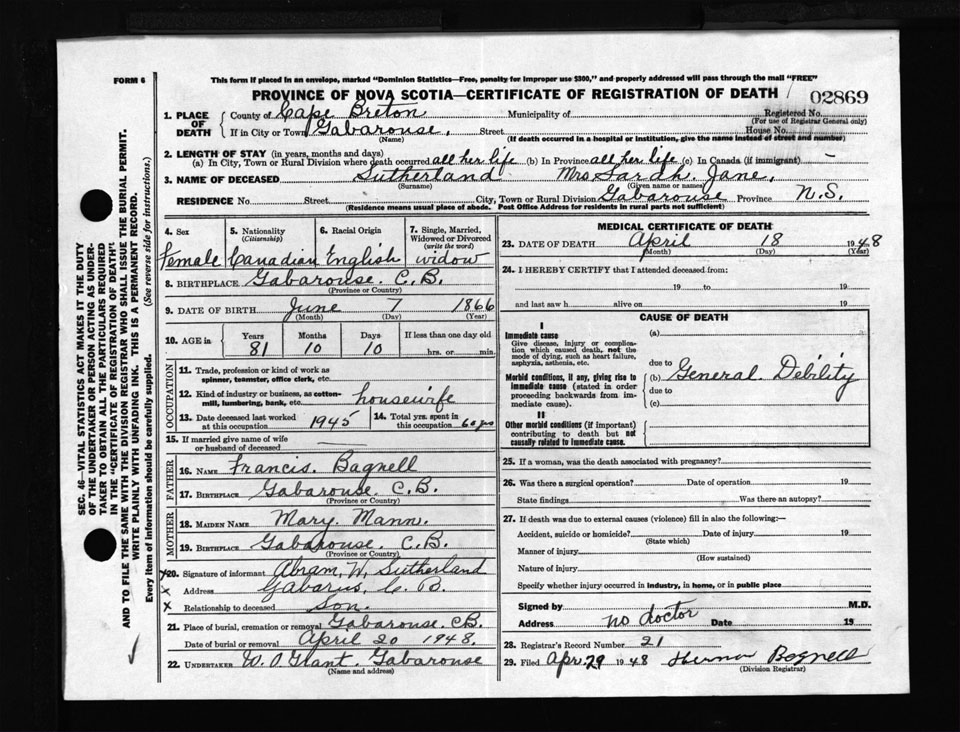 FORM 6
This form if placed in an envelope, marked "Dominion Statistics—Free, penalty for improper use $300," and properly addressed will pass through the mail "FREE"
PROVINCE OF NOVA SCOTIA—CERTIFICATE OF REGISTRATION OF DEATH
02869
1. PLACE OF DEATH
County of Cape Breton Municipality of Registered No.
(For use of Registrar General only)
If in City or Town Gabarouse, Street House No.
(Name) (If death occurred in a hospital or institution, give the name instead of street and number)
2. LENGTH OF STAY (in years, months and days)
(a) In City, Town or Rural Division where death occurred all her life (b) In Province all her life (c) In Canada (if immigrant) —
3. NAME OF DECEASED Sutherland Mrs Sarah. Jane,
(Surname) (Given name or names)
RESIDENCE No. Street City, Town or Rural Division Gabarouse Province N.S.
(Residence means usual place of abode. Post Office Address for residents in rural parts not sufficient)
SEC. 46—VITAL STATISTICS ACT MAKES IT THE DUTY
OF THE UNDERTAKER OR PERSON ACTING AS UNDER-
TAKER TO OBTAIN ALL THE PARTICULARS REQUIRED
IN THE "CERTIFICATE OF REGISTRATION OF DEATH"
AND TO FILE THE SAME WITH THE DIVISION REGISTRAR WHO SHALL ISSUE THE BURIAL PERMIT.
WRITE PLAINLY WITH UNFADING INK. THIS IS A PERMANENT RECORD.
Every item of information should be carefully supplied. (See reverse side for instructions.)
4. Sex
Female
5. Nationality
(Citizenship)
Canadian
6. Racial Origin
English
7. Single, Married,
Widowed or Divorced
(write the word)
widow
8. BIRTHPLACE Gabarouse. C.B.
(Province or Country)
9. DATE OF BIRTH June 7 1866
(Month) (Day) (Year)
10. AGE in Years Months Days If less than one day old
81 10 10 hrs. or min.
OCCUPATION
11. Trade, profession or kind of work as
spinner, teamster, office clerk, etc.
12. Kind of industry or business, as cotton-
mill, lumbering, bank, etc. housewife
13. Date deceased last worked
at this occupation 1945
14. Total yrs. spent in
this occupation 60 yrs
15. If married give name of wife
or husband of deceased —
FATHER
16. NAME Francis. Bagnell
17. BIRTHPLACE Gabarouse. C.B.
(Province or Country)
MOTHER
18. MAIDEN NAME Mary. Mann.
19. BIRTHPLACE Gabarouse. C.B.
(Province or Country)
x20. Signature of informant Abram, W, Sutherland
x Address Gabarus, C. B.
x Relationship to deceased son.
21. Place of burial, cremation or removal Gabarouse. CB.
Date of burial or removal April 20 1948.
22. UNDERTAKER W. O. Grant. Gabarouse
(Name and address)
MEDICAL CERTIFICATE OF DEATH
23. DATE OF DEATH April 18 1948
(Month) (Day) (Year)
24. I HEREBY CERTIFY that I attended deceased from:
19 to 19
and last saw h alive on 19
CAUSE OF DEATH
I
Immediate cause
Give disease, injury or complica-
tion which caused death, not the
mode of dying, such as heart failure,
asphyxia, asthenia, etc.
(a)
due to
Morbid conditions, if any, giving rise to
immediate cause (stated in order
proceeding backwards from im-
mediate cause).
(b) General. Debility
due to
(c)
II
Other morbid conditions (if important)
contributing to death but not
causally related to immediate cause.
25. If a woman, was the death associated with pregnancy?
26. Was there a surgical operation? Date of operation 19
State findings Was there an autopsy?
27. If death was due to external causes (violence) fill in also the following:—
Accident, suicide or homicide? Date of injury 19
(State which)
Manner of injury
(How sustained)
Nature of injury
Specify whether injury occurred in industry, in home, or in public place
Signed by M.D.
Address no doctor Date 19
28. Registrar's Record Number 21
29. Filed Apr. 29 1948 Bagnell
(Division Registrar)